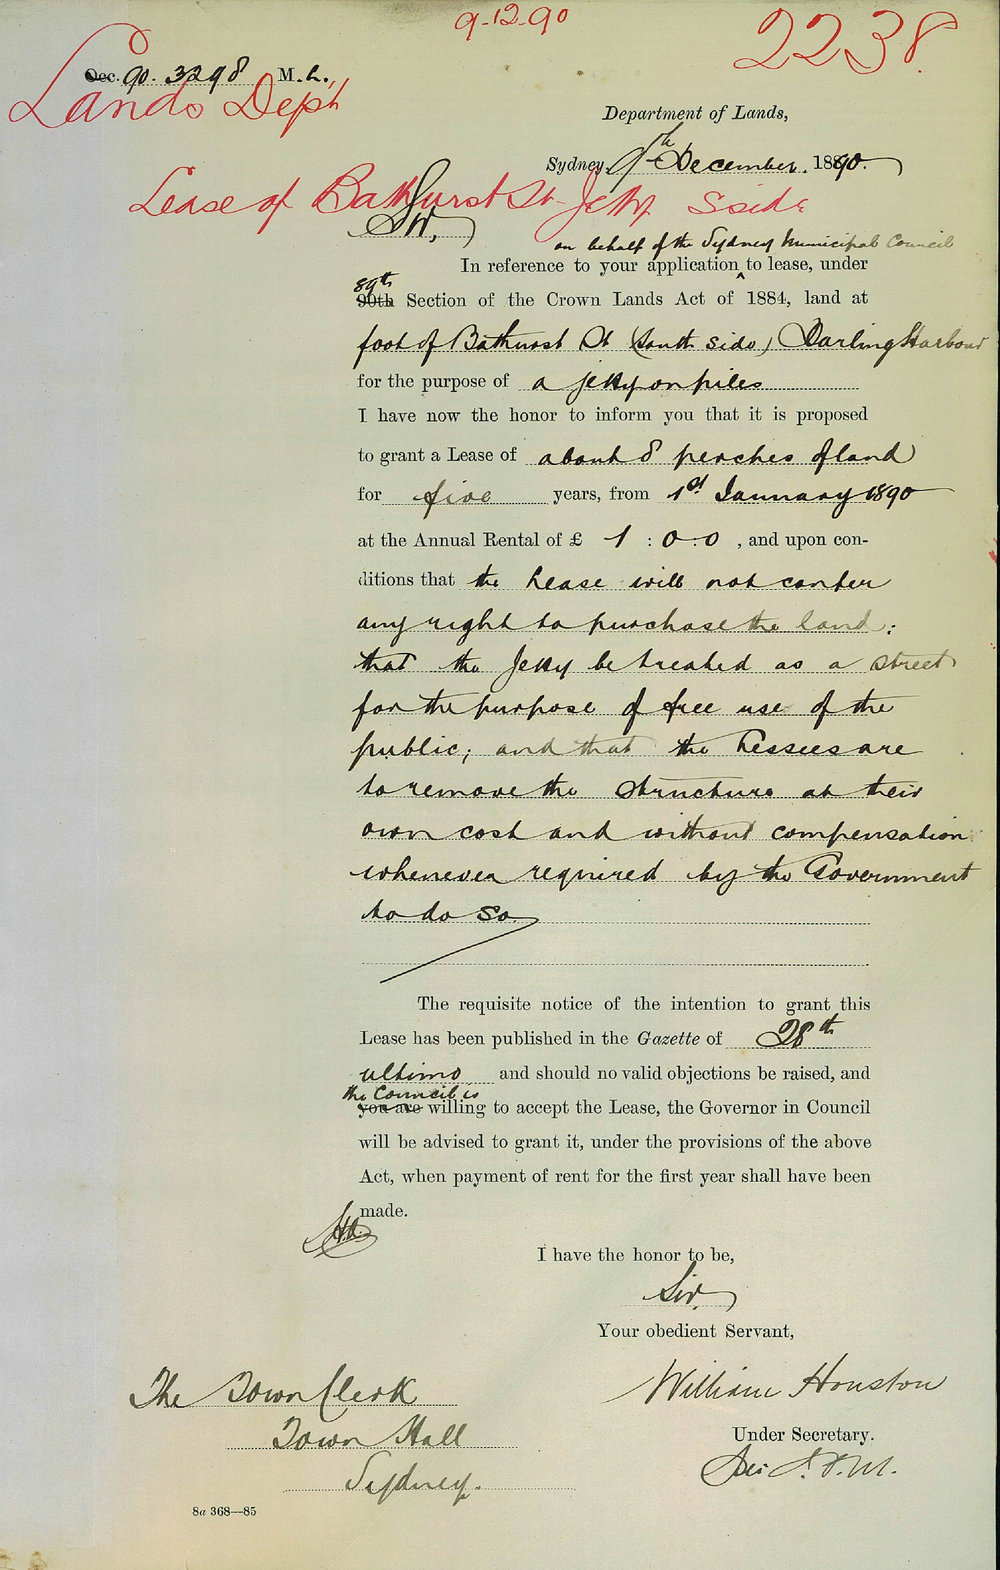 9-12-90
2238.
Occ. 90. 3298 M.L.
Lands Dept
Department of Lands,
Sydney, 9th December. 1890.
Lease of Bathurst St Jetty S side
Sir,
on behalf of the Sydney Municipal Council
In reference to your application to lease, under
89th
90th Section of the Crown Lands Act of 1884, land at
foot of Bathurst St (South side) Darling Harbour
for the purpose of a jetty on piles
I have now the honor to inform you that it is proposed
to grant a Lease of about 8 perches of land
for five years, from 1st January 1890
at the Annual Rental of £ 1 : 0 : 0 , and upon con-
ditions that the Lease will not confer
any right to purchase the land;
that the Jetty be treated as a street
for the purpose of free use of the
public; and that the Lessees are
to remove the structure at their
own cost and without compensation
whenever required by the Government
to do so.
The requisite notice of the intention to grant this
Lease has been published in the Gazette of 28th
ultimo and should no valid objections be raised, and
the Council is
you are willing to accept the Lease, the Governor in Council
will be advised to grant it, under the provisions of the above
Act, when payment of rent for the first year shall have been
made.
I have the honor to be,
Sir,
Your obedient Servant,
William Houston
Under Secretary.
The Town Clerk
Town Hall
Sydney.
8a 368—85